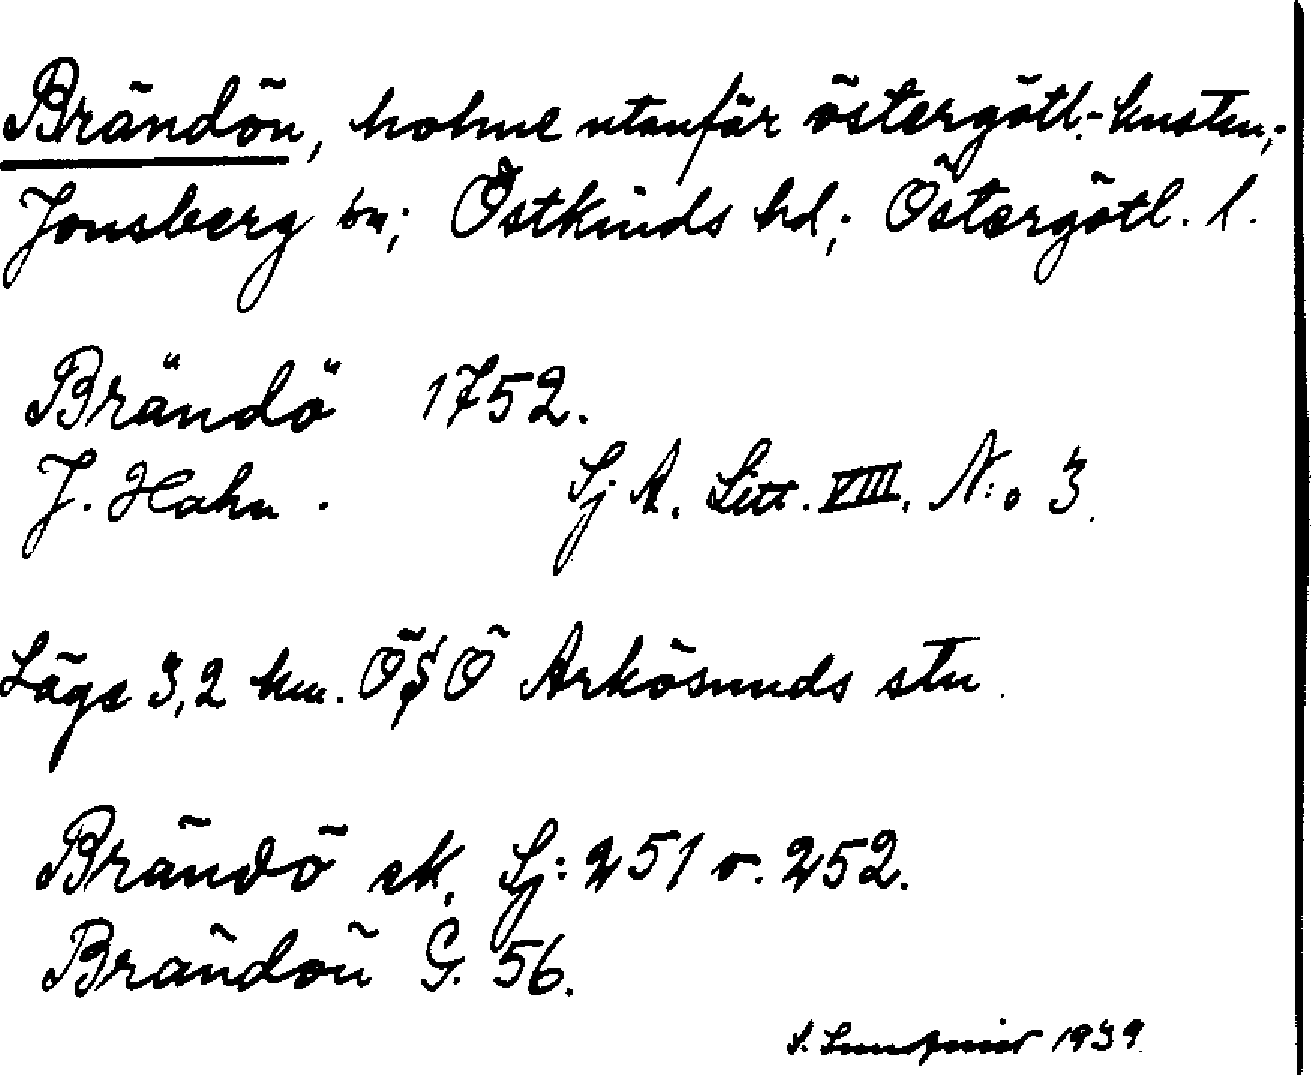 Brändön, holme utanför östergötl.-kusten;
Jonsberg sn; Östkinds hd; Östergötl. l.
Brändö 1752.
J. Hahn. Sj A. Litt. VIII. N:o 3.
Läge 3,2 km. ÖSÖ Arkösunds stn.
Brändö sk. Sj: 251 o. 252.
Brändön G. 56.
1939